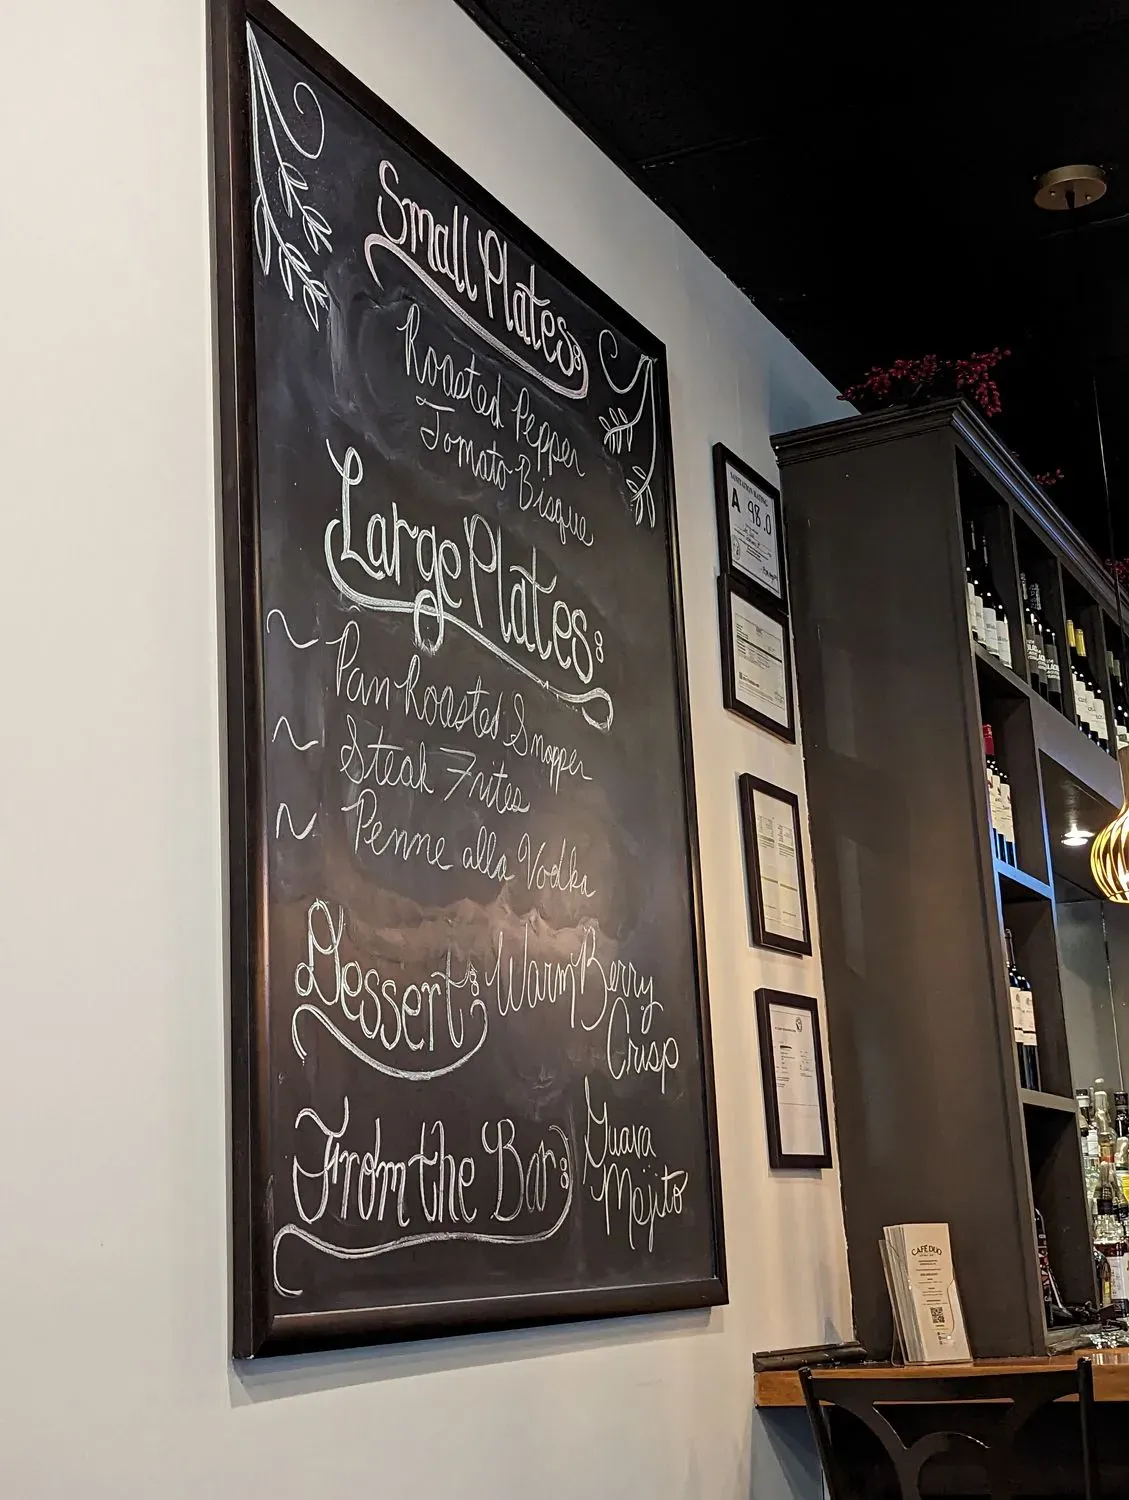 Small Plates:
Roasted Pepper
Tomato Bisque
Large Plates:
~ Pan Roasted Snapper
~ Steak Frites
~ Penne alla Vodka
Dessert: Warm Berry
Crisp
From the Bar: Guava
Mojito
SANITATION RATING
A 98.0
CAFÉ DUO